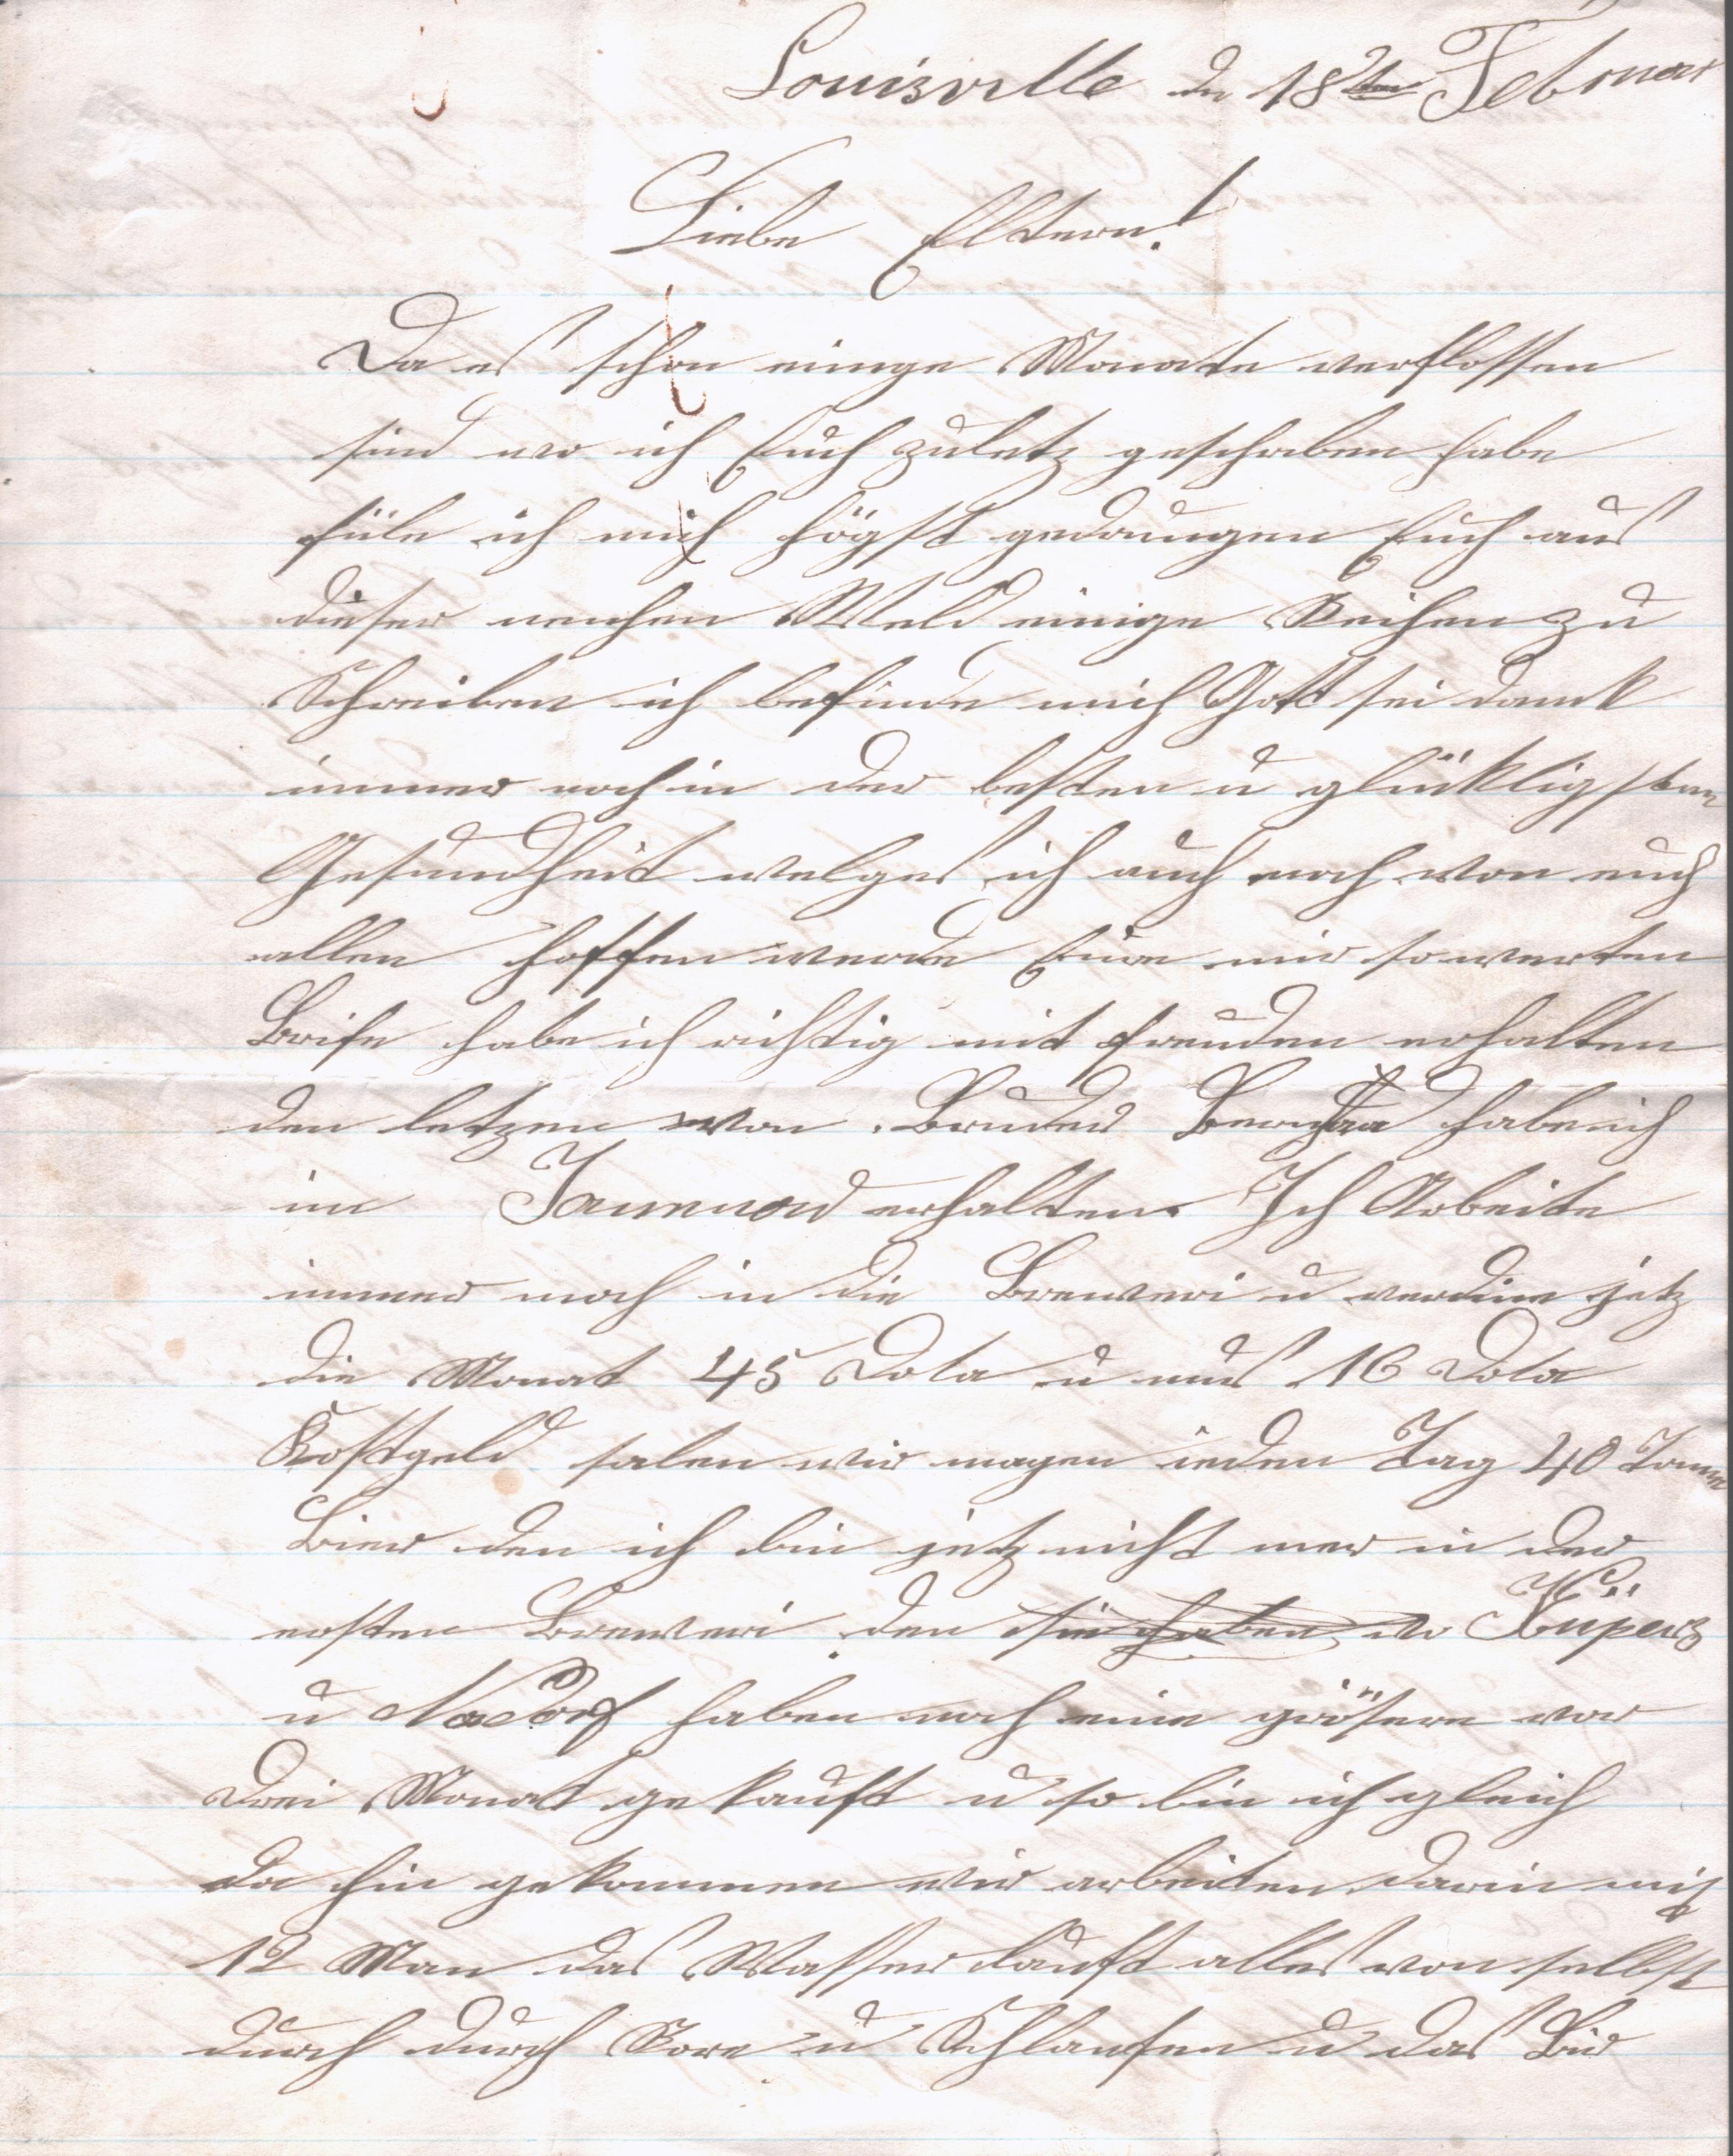 Louisville den 18ten Februar
Liebe Eltern!
Da es schon einige Monate verflossen
sind wo ich Euch zuletz geschrieben habe
füle ich mich högst gedrungen Euch aus
dieser neuhen Weld einige Reihen zu
Schreiben ich befinde mich Gott sei dank
immer noch in der besten u glükligsten
Gesundheit welges ich auch noch von euch
allen hoffen werde Eure mir so werten
Brife habe ich richtig mit freuden erhalten
den letzen von Bruder habe ich
im Januward erhalten. Ich Arbeite
immer noch in die Breweri u verdine jetz
die Monat 45 Dola u mus 16 Dola
Kostgeld salen wir magen ieden Tag 40 Tonnen
Bier den ich bin jetz nicht mer in der
ersten Breweri den sie haben Küpers
u Nadorf haben noch eine grösere vor
drei Monat ge kauft u so bin ich gleich
da hin gekommen wir arbeiten darin mit
12 Man das Wasser läuft alles von selbst
durch durch Rore u Schlaufen u das Bir